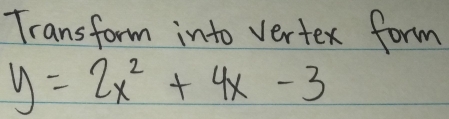 Transform into vertex form
y = 2x² + 4x - 3